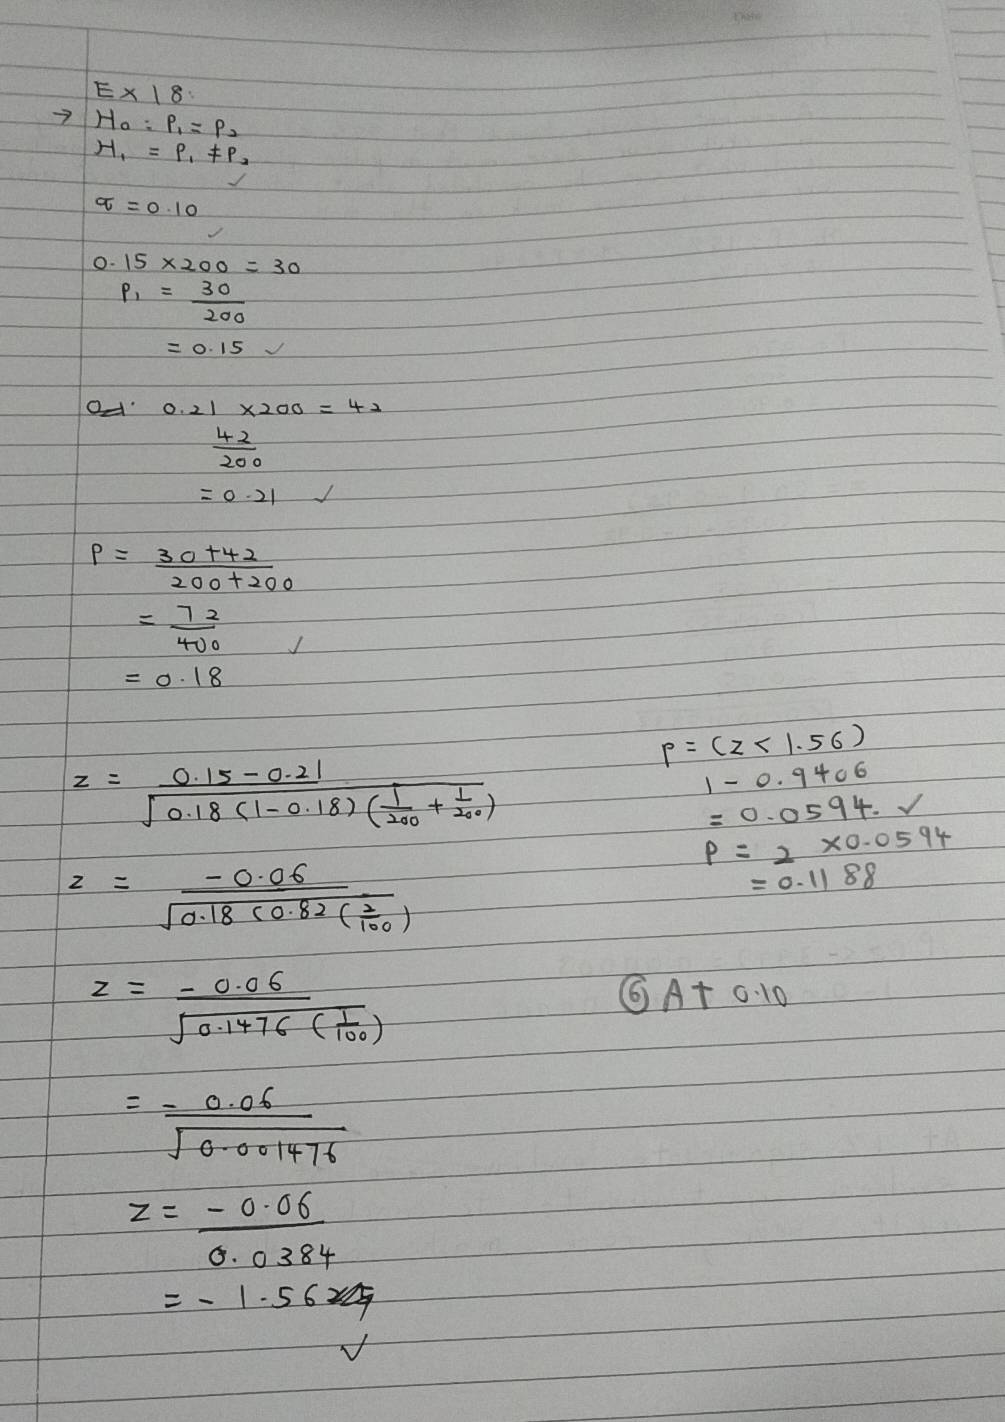 Ex 18:
→ H₀ : P₁ = P₂
H₁ = P₁ ≠ P₂
✓
α = 0.10
✓
0.15 × 200 = 30
P₁ = 30
200
= 0.15 ✓
0.21 × 200 = 42
42
200
= 0.21 ✓
P = 30 + 42
200 + 200
= 72
400 ✓
= 0.18
z = 0.15 - 0.21
√0.18 (1 - 0.18) (1/200 + 1/200)
z = - 0.06
√0.18 (0.82 (2/100)
z = - 0.06
√0.1476 (1/100)
= - 0.06
√0.001476
z = - 0.06
0.0384
= - 1.56
✓
p = (z < 1.56)
1 - 0.9406
= 0.0594. ✓
P = 2 × 0.0594
= 0.1188
⑥ At 0.10